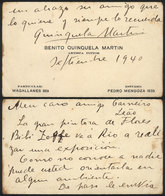 un abrazo su amigo que
lo quiere y siempre lo recuerda
Quinquela Martin
BENITO QUINQUELA MARTIN
ARTISTA PINTOR
Septiembre 1940
PARTICULAR:
MAGALLANES 889
ESTUDIO:
PEDRO MENDOZA 1835
Meu caro amigo Carneiro
Leão
La gran pintora de Flores
va a Río a reali-
zar una exposición
Como no conoce a nadie
puede usted orientarla en
algun ambiente